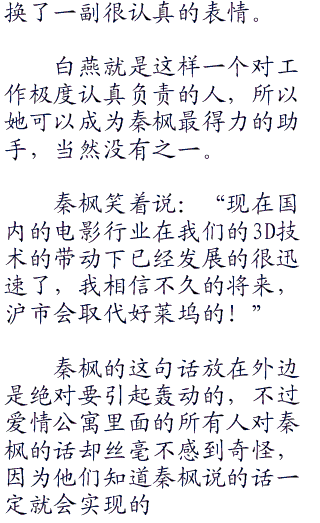 换了一副很认真的表情。
白燕就是这样一个对工
作极度认真负责的人，所以
她可以成为秦枫最得力的助
手，当然没有之一。
秦枫笑着说：“现在国
内的电影行业在我们的3D技
术的带动下已经发展的很迅
速了，我相信不久的将来，
沪市会取代好莱坞的！”
秦枫的这句话放在外边
是绝对要引起轰动的，不过
爱情公寓里面的所有人对秦
枫的话却丝毫不感到奇怪，
因为他们知道秦枫说的话一
定就会实现的